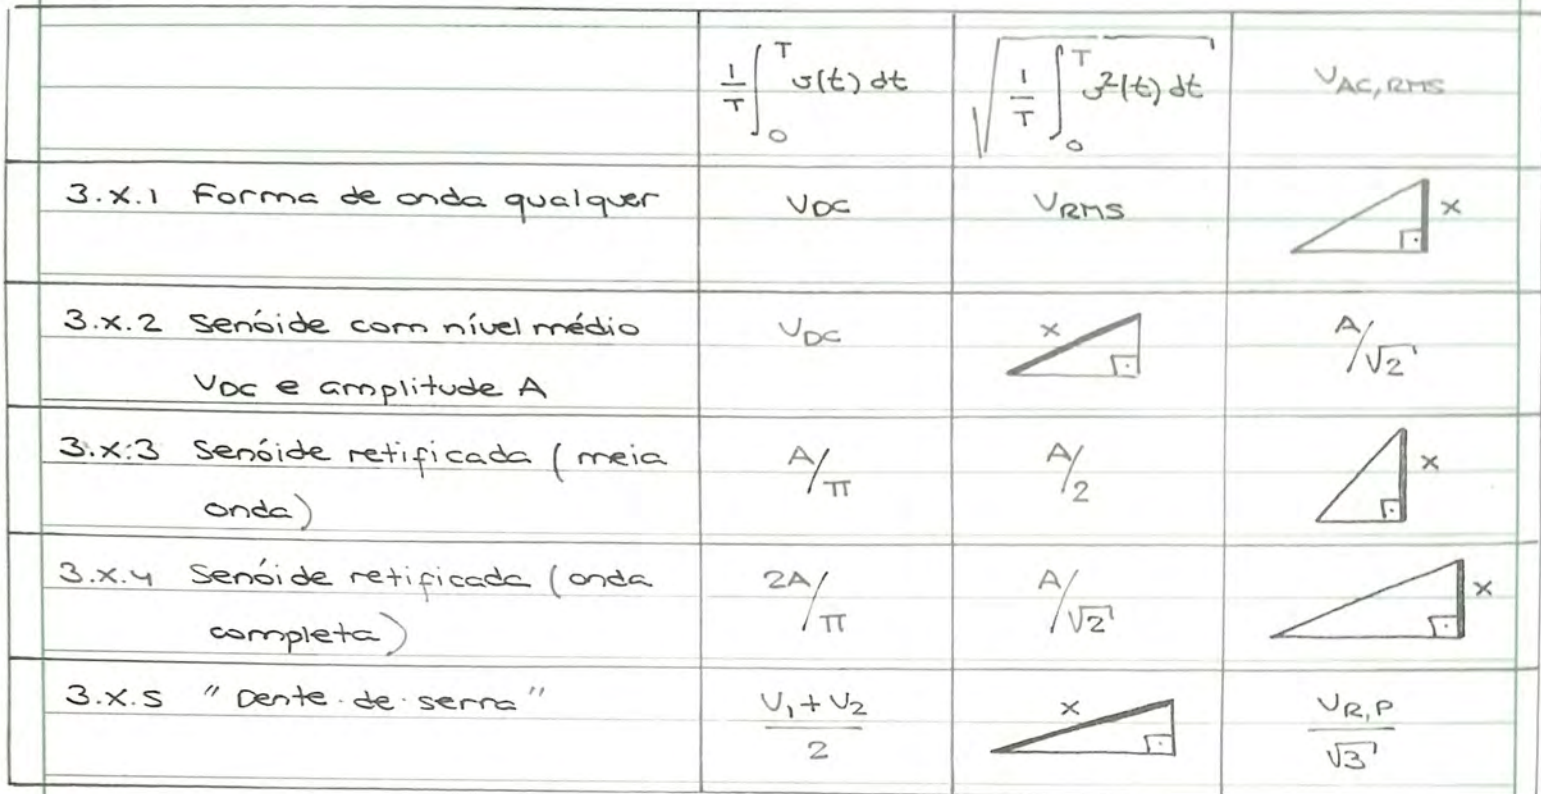 1/T ∫₀ᵀ v(t) dt √(1/T ∫₀ᵀ v²(t) dt) VAC,RMS
3.X.1 Forma de onda qualquer VDC VRMS x
3.X.2 Senóide com nível médio VDC x A/√2
VDC e amplitude A
3.X.3 Senóide retificada (meia A/π A/2 x
onda)
3.X.4 Senóide retificada (onda 2A/π A/√2 x
completa)
3.X.5 "Dente.de.serra" V₁+V₂/2 x VR,P/√3